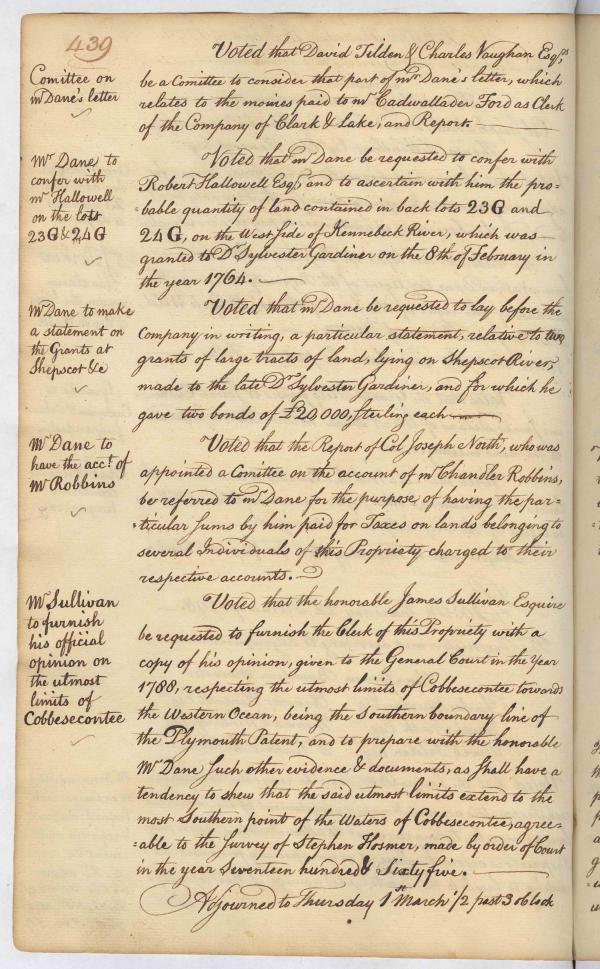 439
Voted that David Tilden & Charles Vaughan Esqrs
Comittee on
mr Dane's letter
be a Comittee to consider that part of mr Dane's letter, which
relates to the monies paid to mr Cadwallader Ford as Clerk
of the Company of Clark & Lake, and Report.
Mr Dane to
confer with
mr Hallowell
on the lots
23G & 24G
Voted that mr Dane be requested to confer with
Robert Hallowell Esqr and to ascertain with him the pro=
bable quantity of land contained in back lots 23G and
24G, on the West side of Kennebeck River, which was
granted to Dr Sylvester Gardiner on the 8th of February in
the year 1764.
Mr Dane to make
a statement on
the Grants at
Shepscot &c
Voted that mr Dane be requested to lay before the
Company in writing, a particular statement, relative to two
grants of large tracts of land, lying on Shepscot River,
made to the late Dr Sylvester Gardiner, and for which he
gave two bonds of £20,000, sterling each
Mr Dane to
have the acct. of
Mr Robbins
Voted that the Report of Col Joseph North, who was
appointed a Comittee on the account of mr Chandler Robbins,
be referred to mr Dane for the purpose of having the par=
=ticular sums by him paid for Taxes on lands belonging to
several Individuals of this Propriety charged to their
respective accounts.
Mr Sullivan
to furnish
his official
opinion on
the utmost
limits of
Cobbesecontee
Voted that the honorable James Sullivan Esquire
be requested to furnish the Clerk of this Propriety with a
copy of his opinion, given to the General Court in the Year
1788, respecting the utmost limits of Cobbesecontee towards
the Western Ocean, being the Southern boundary line of
the Plymouth Patent, and to prepare with the honorable
Mr Dane such other evidence & documents, as shall have a
tendency to shew that the said utmost limits extend to the
most Southern point of the Waters of Cobbesecontee, agree=
=able to the survey of Stephen Hosmer, made by order of Court
in the year seventeen hundred & sixty five.
Adjourned to Thursday 1st March 1/2 past 3 oClock